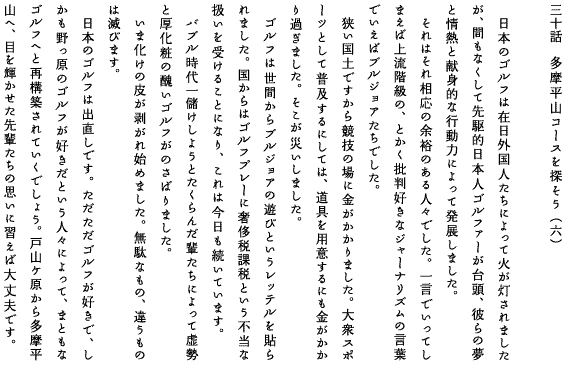 三十話　多摩平山コースを探そう（六）
日本のゴルフは在日外国人たちによって火が灯されました
が、間もなくして先駆的日本人ゴルファーが台頭、彼らの夢
と情熱と献身的な行動力によって発展しました。
それはそれ相応の余裕のある人々でした。一言でいってし
まえば上流階級の、とかく批判好きなジャーナリズムの言葉
でいえばブルジョアたちでした。
狭い国土ですから競技の場に金がかかりました。大衆スポ
ーツとして普及するにしては、道具を用意するにも金がかか
り過ぎました。そこが災いしました。
ゴルフは世間からブルジョアの遊びというレッテルを貼ら
れました。国からはゴルフプレーに奢侈税課税という不当な
扱いを受けることになり、これは今日も続いています。
バブル時代一儲けしようとたくらんだ輩たちによって虚勢
と厚化粧の醜いゴルフがのさばりました。
いま化けの皮が剥がれ始めました。無駄なもの、違うもの
は滅びます。
日本のゴルフは出直しです。ただただゴルフが好きで、し
かも野っ原のゴルフが好きだという人々によって、まともな
ゴルフへと再構築されていくでしょう。戸山ヶ原から多摩平
山へ、目を輝かせた先輩たちの思いに習えば大丈夫です。